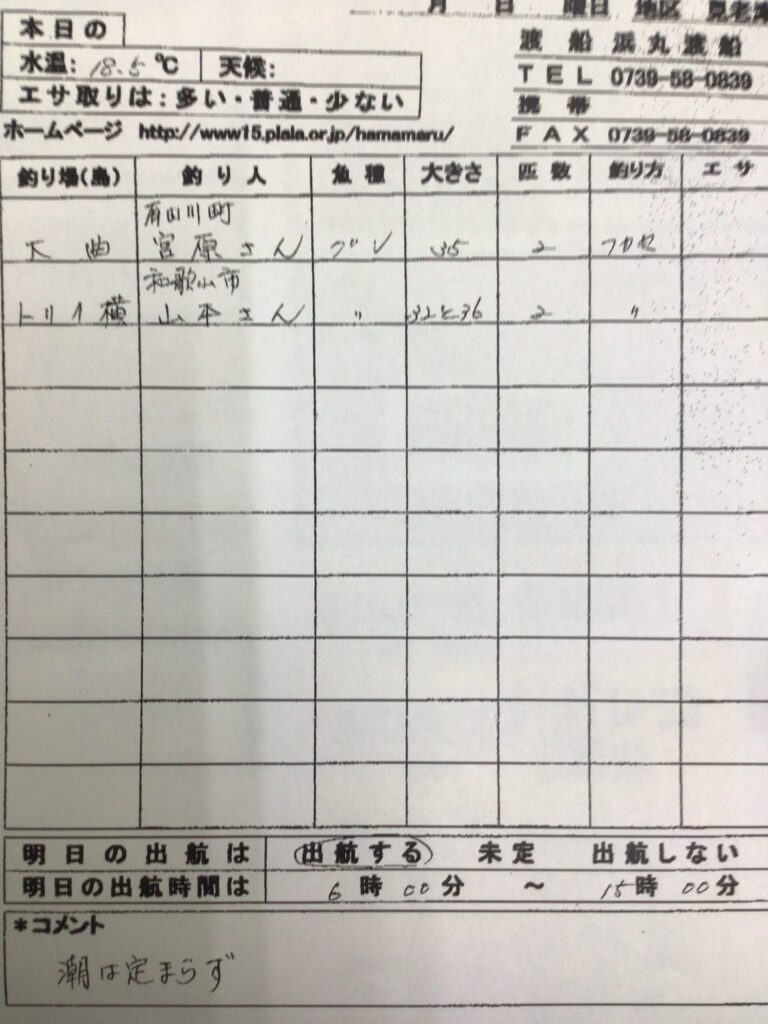 月 日 曜日 地区 見老津
本日の
水温: 18.5℃ 天候:
エサ取りは:多い・普通・少ない
渡船 浜丸渡船
TEL 0739-58-0839
携帯
FAX 0739-58-0839
ホームページ http://www15.plala.or.jp/hamamaru/
釣り場(島) 釣り人 魚種 大きさ 匹数 釣り方 エサ
有田川町
大曲 宮原さん グレ 35 2 フカセ
和歌山市
トリイ横 山本さん 〃 32と36 2 〃
明日の出航は 出航する 未定 出航しない
明日の出航時間は 6時00分 ~ 15時00分
*コメント
潮は定まらず